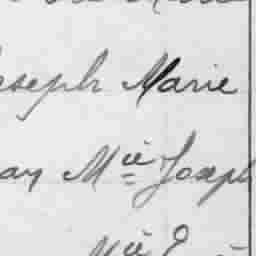 oseph Marie
ay Mie Joseph
Mie E